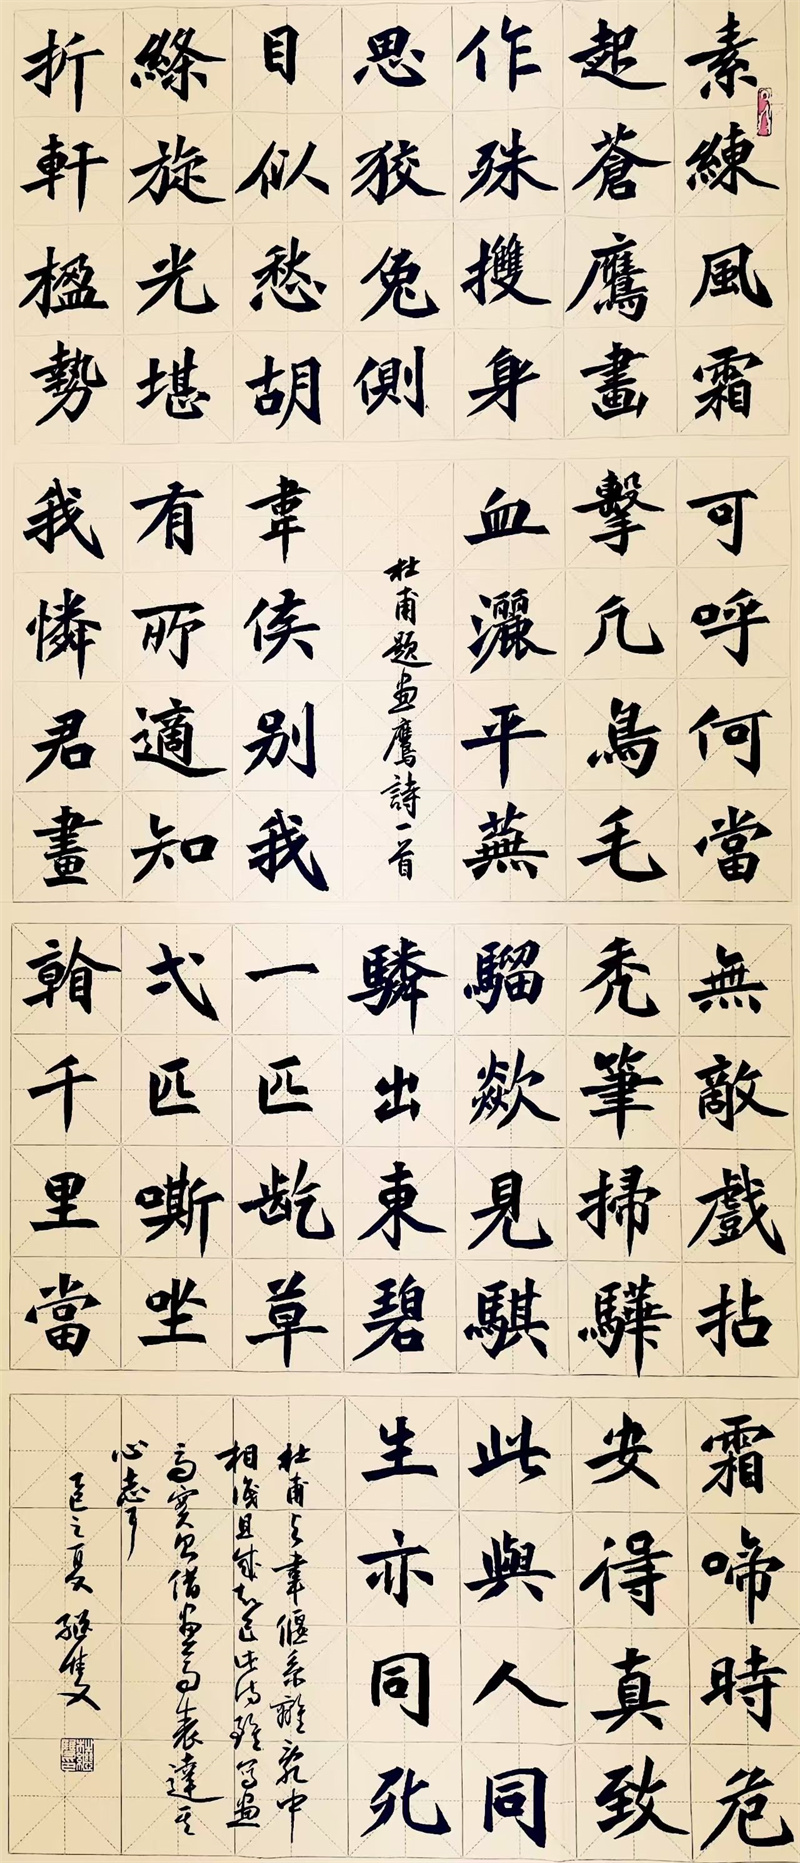 素練風霜
起蒼鷹畫
作殊㩳身
思狡兔側
目似愁胡
絛旋光堪
折軒楹勢
可呼何當
擊凡鳥毛
血灑平蕪
杜甫題畫鷹詩一首
韋侯别我
有所適知
我憐君畫
無敵戲拈
秃筆掃驊
騮歘見騏
驎出東碧
一匹齕草
弍匹嘶坐
看千里當
霜啼時危
安得真致
此與人同
生亦同死
杜甫与韋偃系離亂中
相識且成知己此詩雖寫畫
馬實則借畫馬表達其
心志耳
乙巳之夏